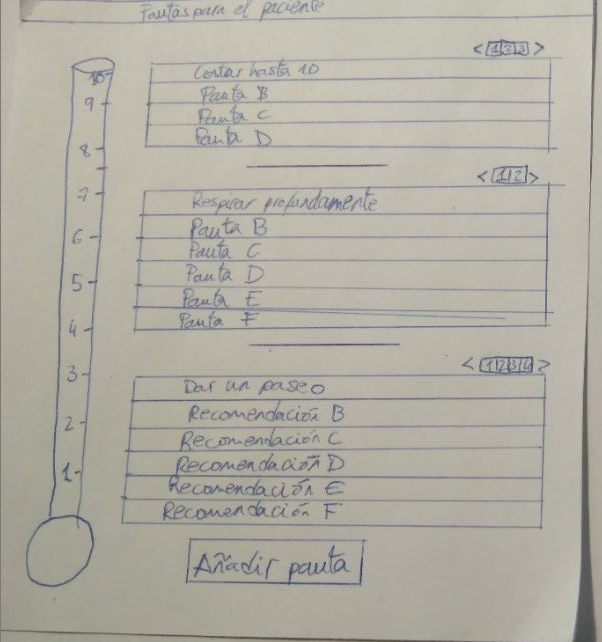 Pautas para el paciente
< 1 2 3 >
10
Contar hasta 10
9
Pauta B
Pauta C
8
Pauta D
< 1 2 >
7
Respirar profundamente
6
Pauta B
Pauta C
5
Pauta D
Pauta E
4
Pauta F
< 1 2 3 4 >
3
Dar un paseo
2
Recomendación B
Recomendación C
1
Recomendación D
Recomendación E
Recomendación F
Añadir pauta